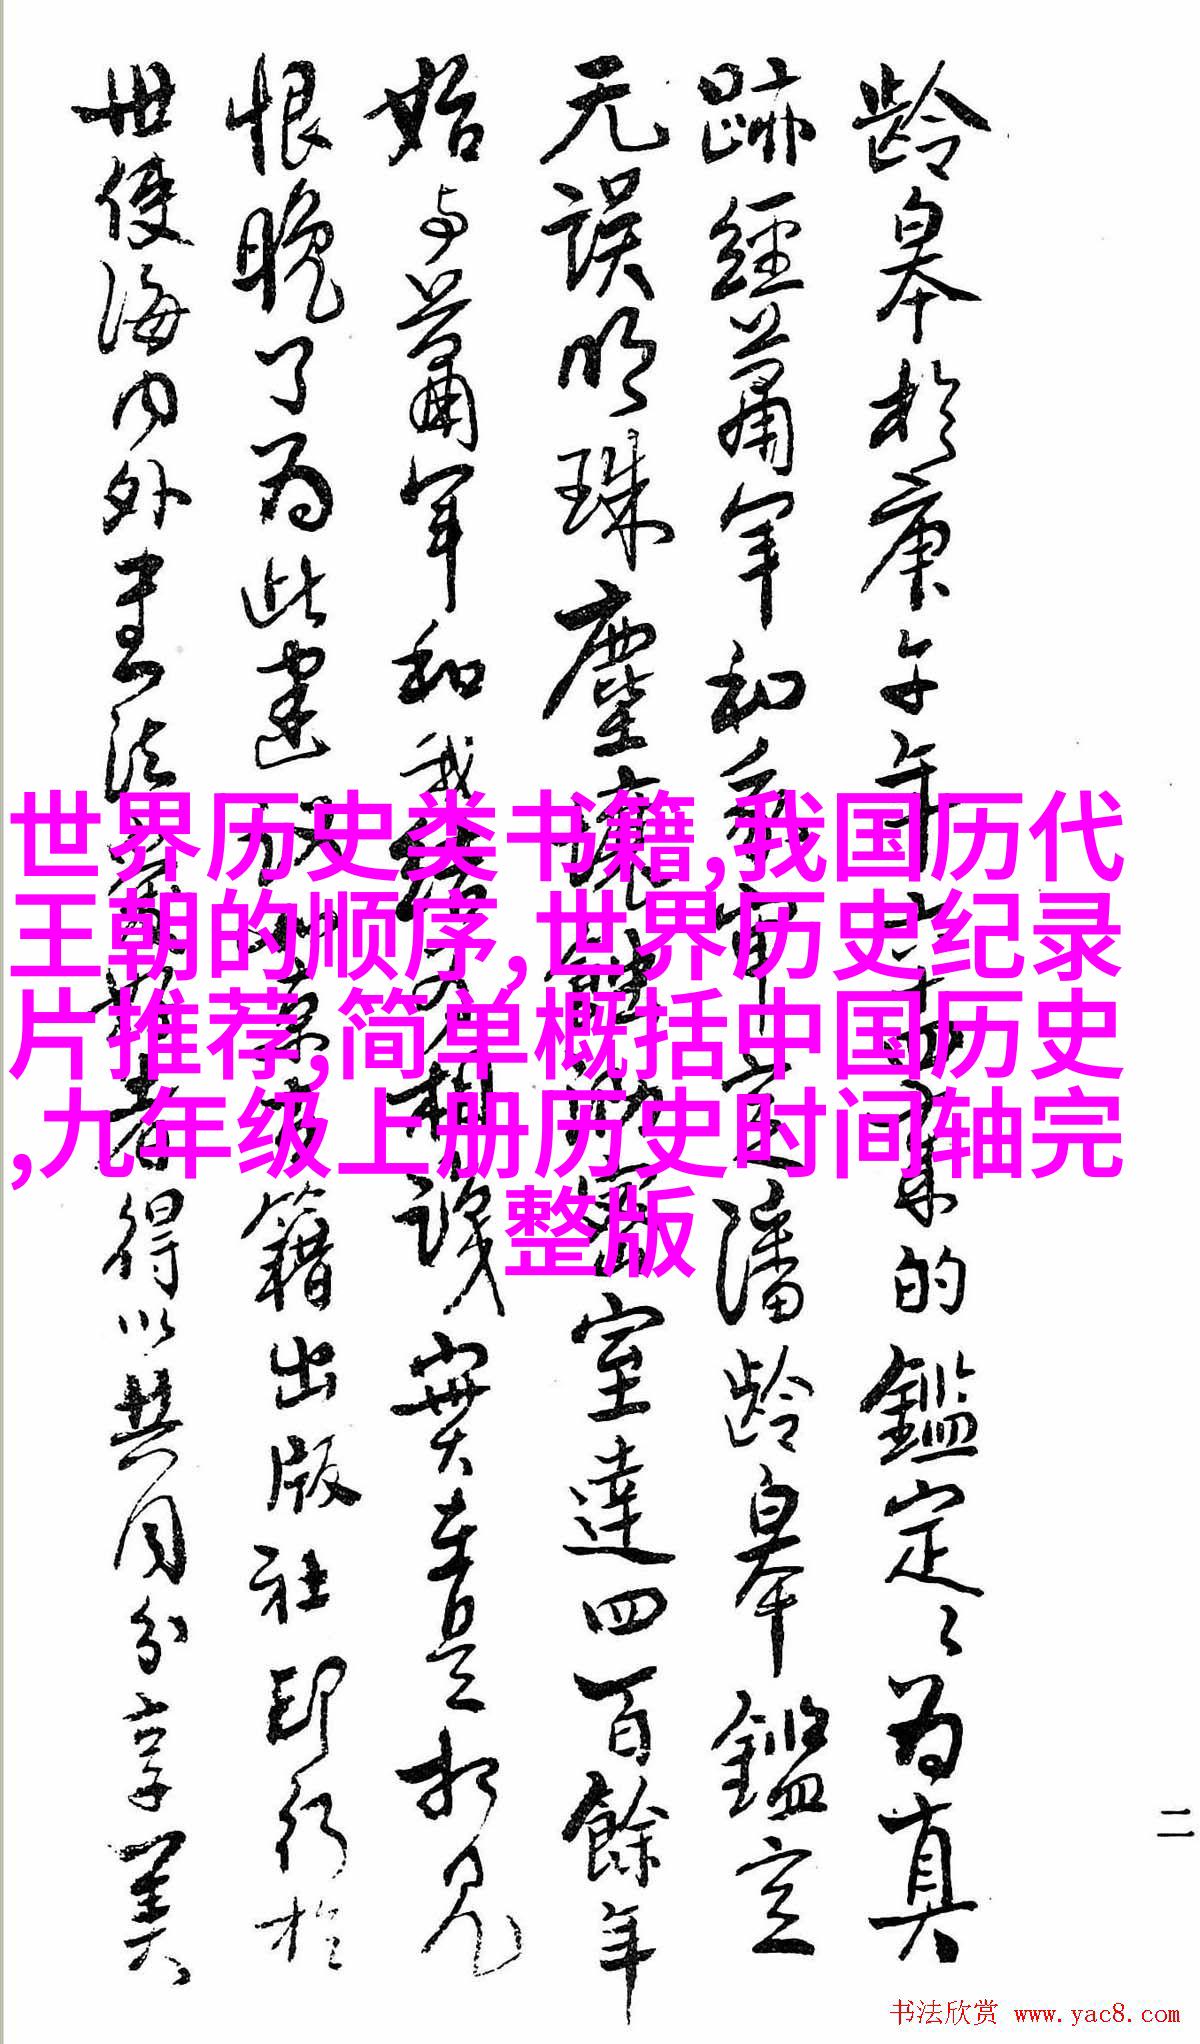 龄皋於庚午年
的鑑定之为真
跡經萧军和
定潘龄皋鑑定
无误明珠塵
室達四百餘年
始与萧军和我
相識实在是相见
恨晚了为此建
籍出版社印行於
世使海内外書法
者得以共同分享美
世界历史类书籍,我国历代
王朝的顺序,世界历史纪录
片推荐,简单概括中国历史
,九年级上册历史时间轴完
整版
二
书法欣赏 www.yac8.com